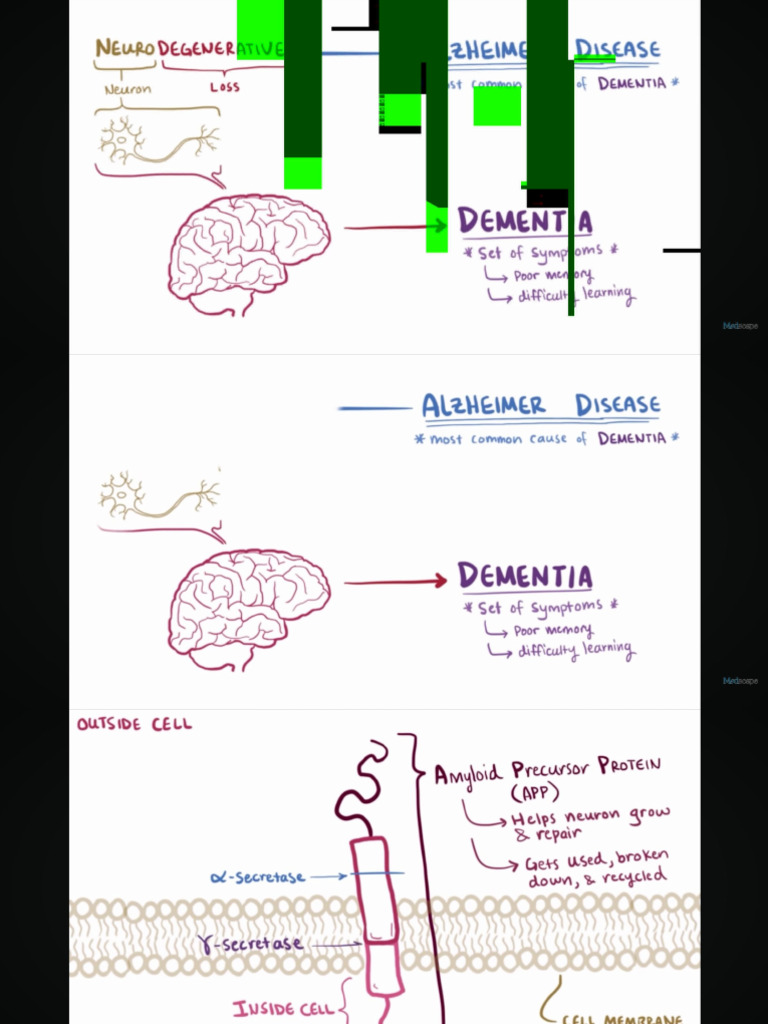 NEURODEGENERATIVE
ALZHEIMER DISEASE
Neuron
Loss
most common of DEMENTIA *
DEMENTIA
* Set of symptoms *
Poor memory
difficulty learning
Medscape
ALZHEIMER DISEASE
* most common cause of DEMENTIA *
DEMENTIA
* Set of symptoms *
Poor memory
difficulty learning
Medscape
OUTSIDE CELL
Amyloid Precursor PROTEIN
(APP)
Helps neuron grow
& repair
Gets used, broken
down, & recycled
α-secretase
γ-secretase
INSIDE CELL
CELL MEMBRANE